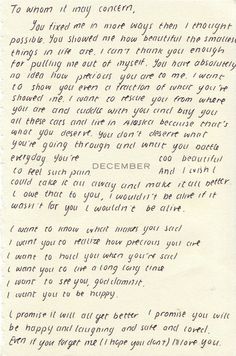 To whom it may concern,
You fixed me in more ways then I thought
possible. You showed me how beautiful the smallest
things in life are. I can't thank you enough
for pulling me out of myself. You have absolutely
no idea how precious you are to me. I want
to show you even a fraction of what you've
showed me. I want to rescue you from where
you are and cuddle with you and buy you
all these cats and live in Alaska because that's
what you deserve. You don't deserve what
you're going through and what you battle
everyday. You're too beautiful
DECEMBER
to feel such pain And I wish I
could take it all away and make it all better.
I owe that to you, I wouldn't be alive if it
wasn't for you I wouldn't be alive.
I want to know what makes you sad
I want you to realize how precious you are
I want to hold you when you're sad
I want you to live a long long time
I want to see you, god damnit.
I want you to be happy.
I promise it will all get better I promise you will
be happy and laughing and safe and loved.
Even if you forget me (I hope you don't) I'll love you.